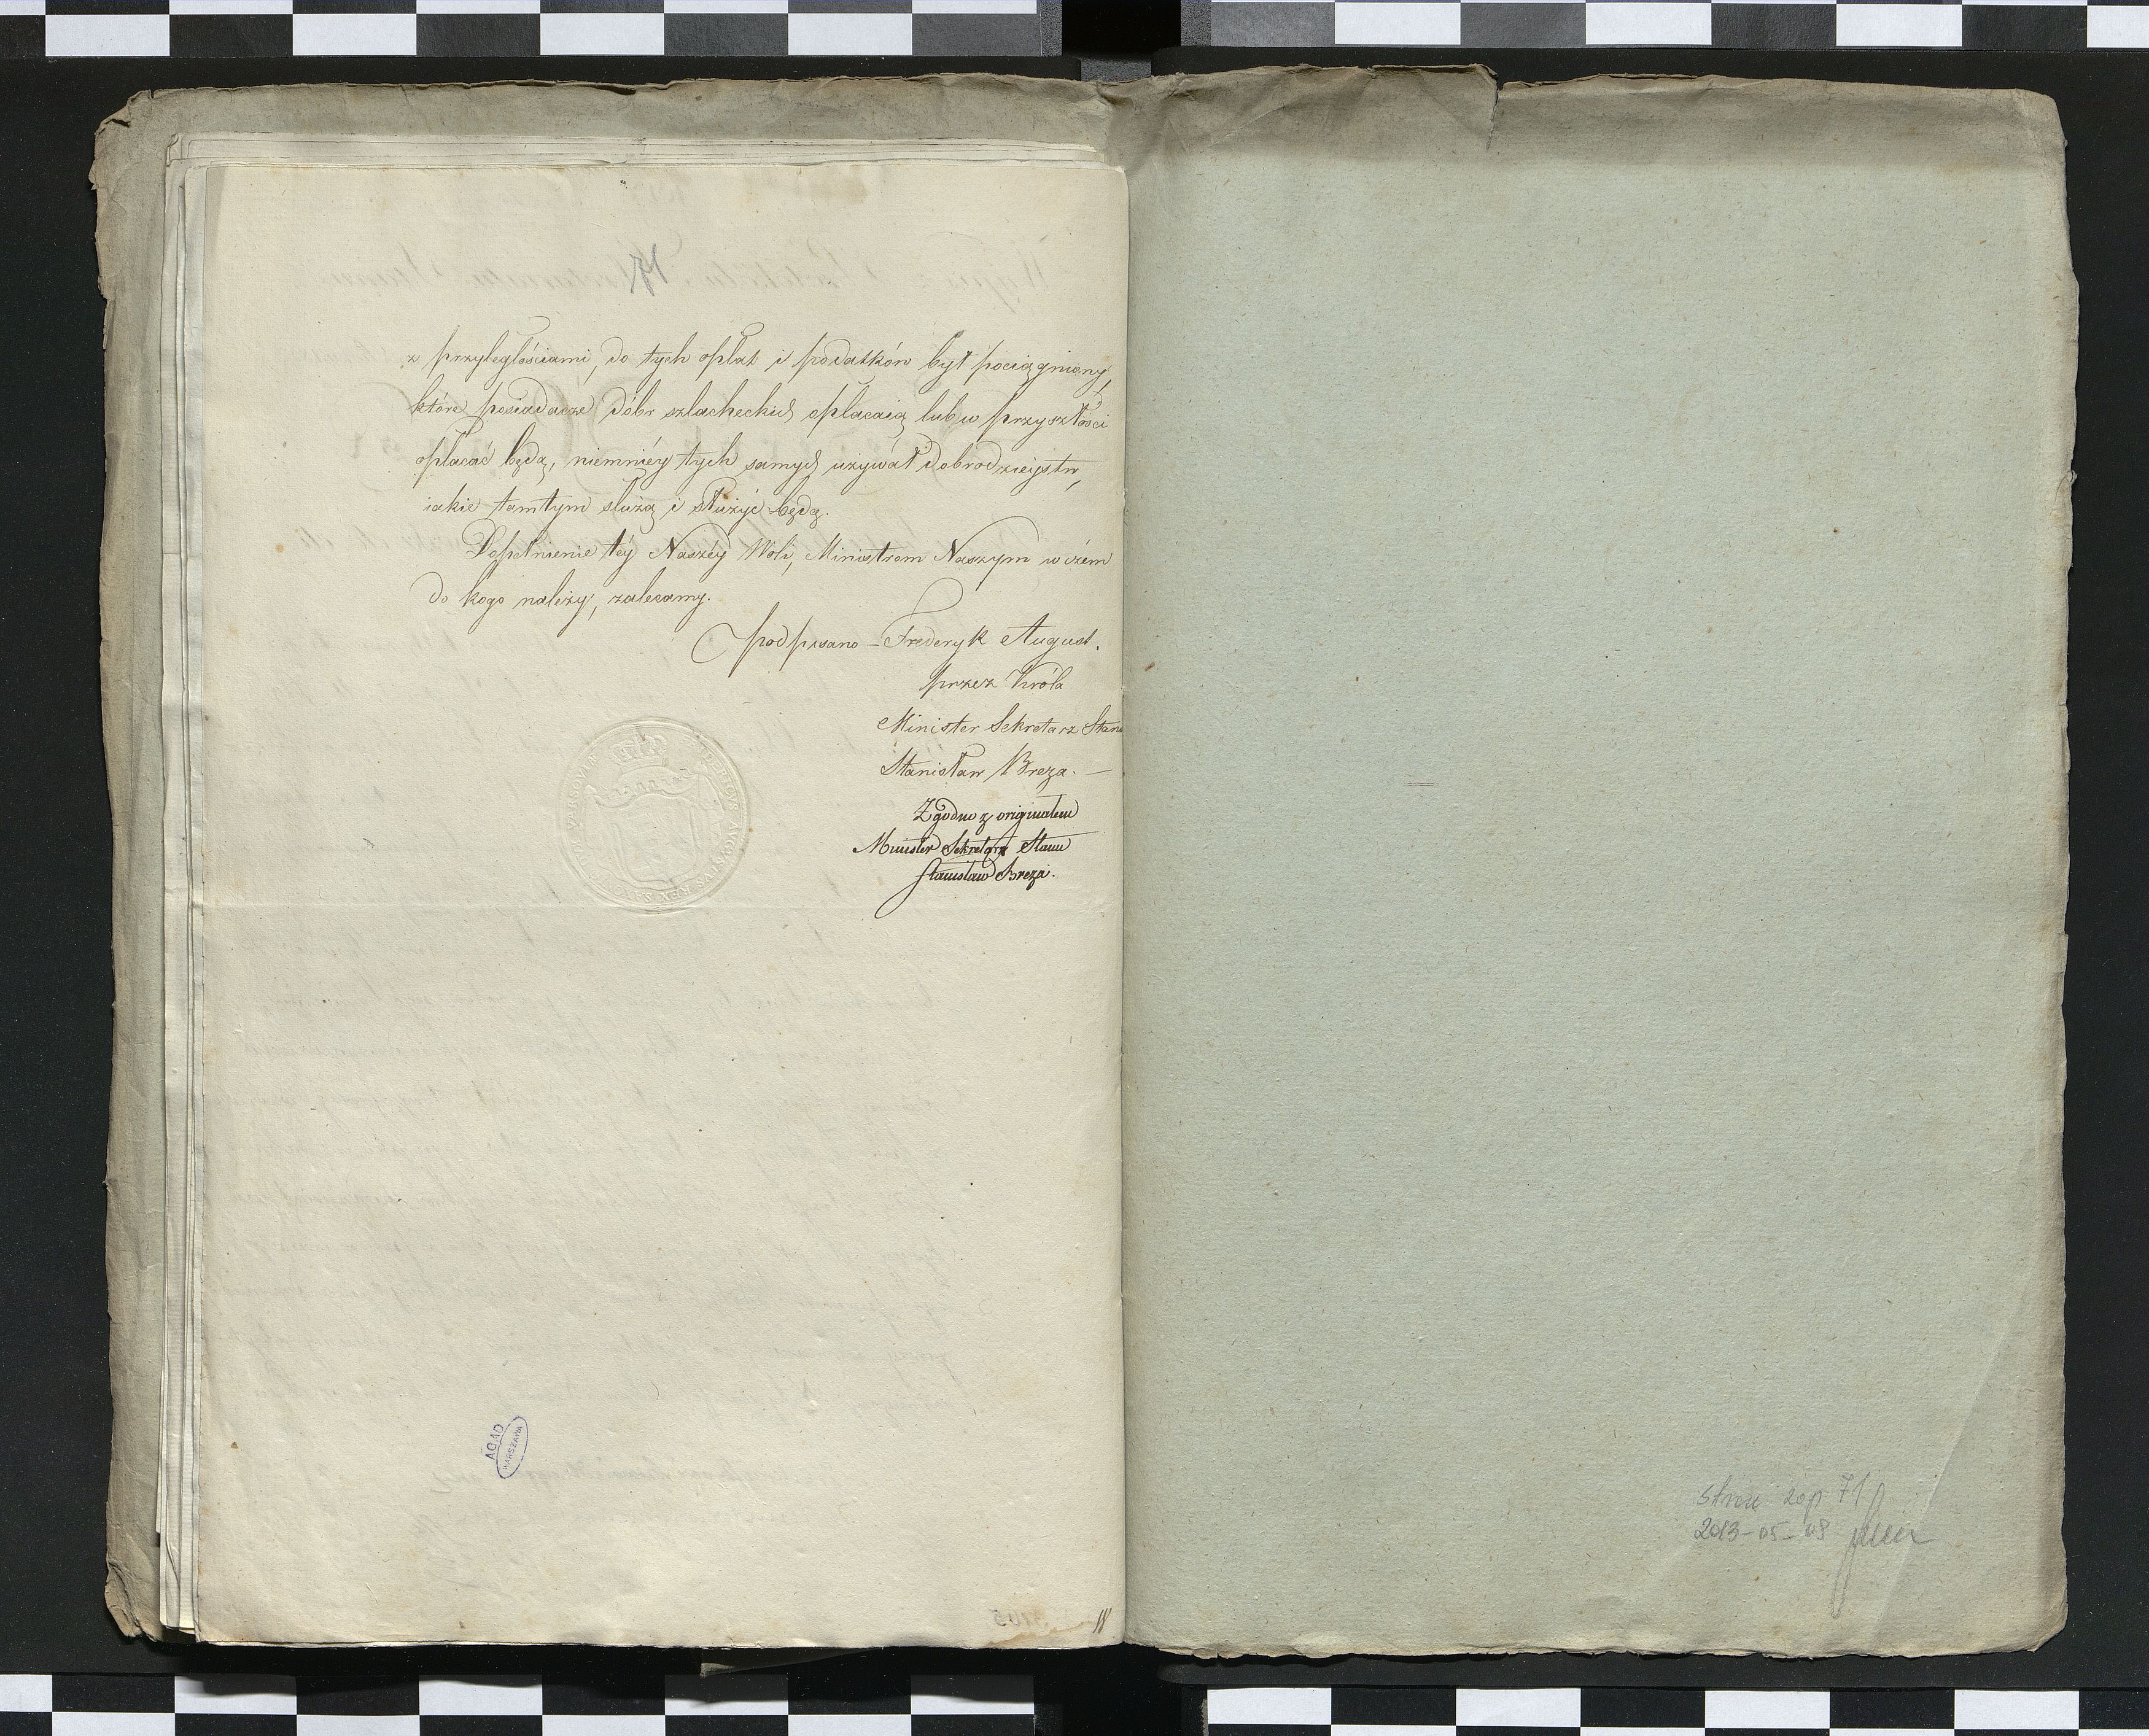 z przyległościami, do tych opłat i podatków był pociągniony,
które posiadacze dóbr szlacheckich opłacaią lub w przyszłości
opłacać będą, niemniéy tych samych używał dobrodzieystw,
iakie tamtym służą i służyć będą.
Dopełnienie téy Naszéy Woli, Ministrom Naszym w czém
do kogo należy, zalecamy.
podpisano – Frederyk August.
przez Króla
Minister Sekretarz Stanu
Stanisław Breza. –
Zgodno z originałem
Minister Sekretarz Stanu
Stanisław Breza.
AGAD
WARSZAWA
71
2013-05-08